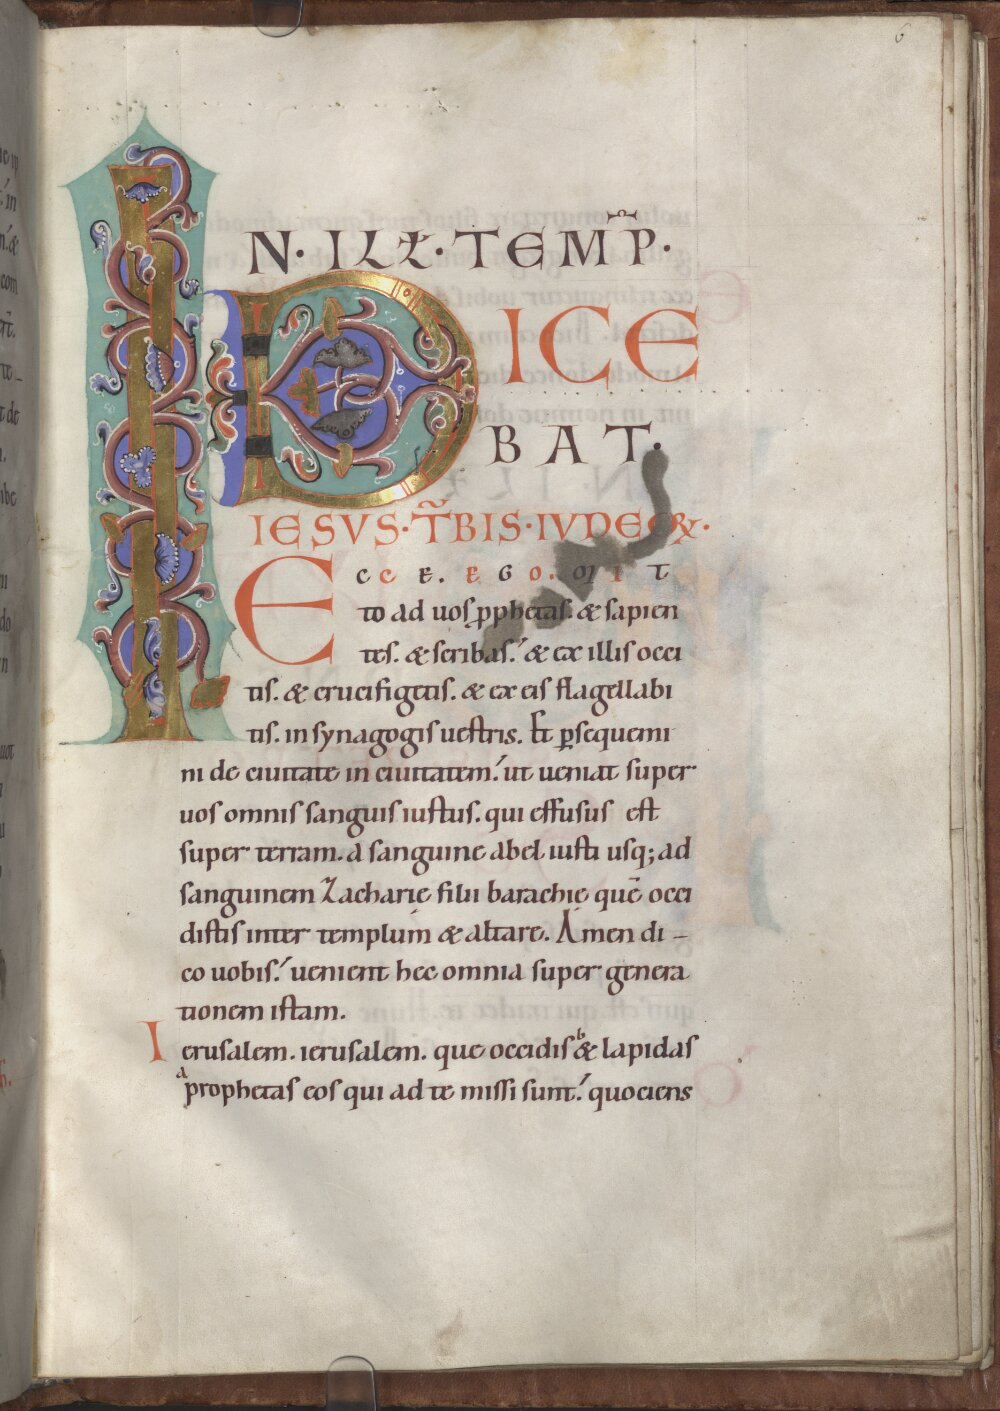 6
IN · ILŁ · TEMP̄ ·
DICE
BAT ·
IESVS · T̄BIS · IVDEOꝜ ·
ECCE . EGO . MIT
to ad uos pphetas . & sapien
tes . & scribas . & ex illis occi
tis . & crucifigetis . & ex eis flagellabi
tis . in synagogis uestris . Et ꝑsequemi
ni de ciuitate in ciuitatem . ut ueniat super
uos omnis sanguis iustus . qui effusus est
super terram . a sanguine abel iusti usq; ad
sanguinem Zacharie filii barachie quē occi
distis inter templum & altare . Amen di –
co uobis . uenient hec omnia super genera
tionem istam .
Ierusalem . ierusalem . que occidis b & lapidas
a prophetas eos qui ad te missi sunt . quociens